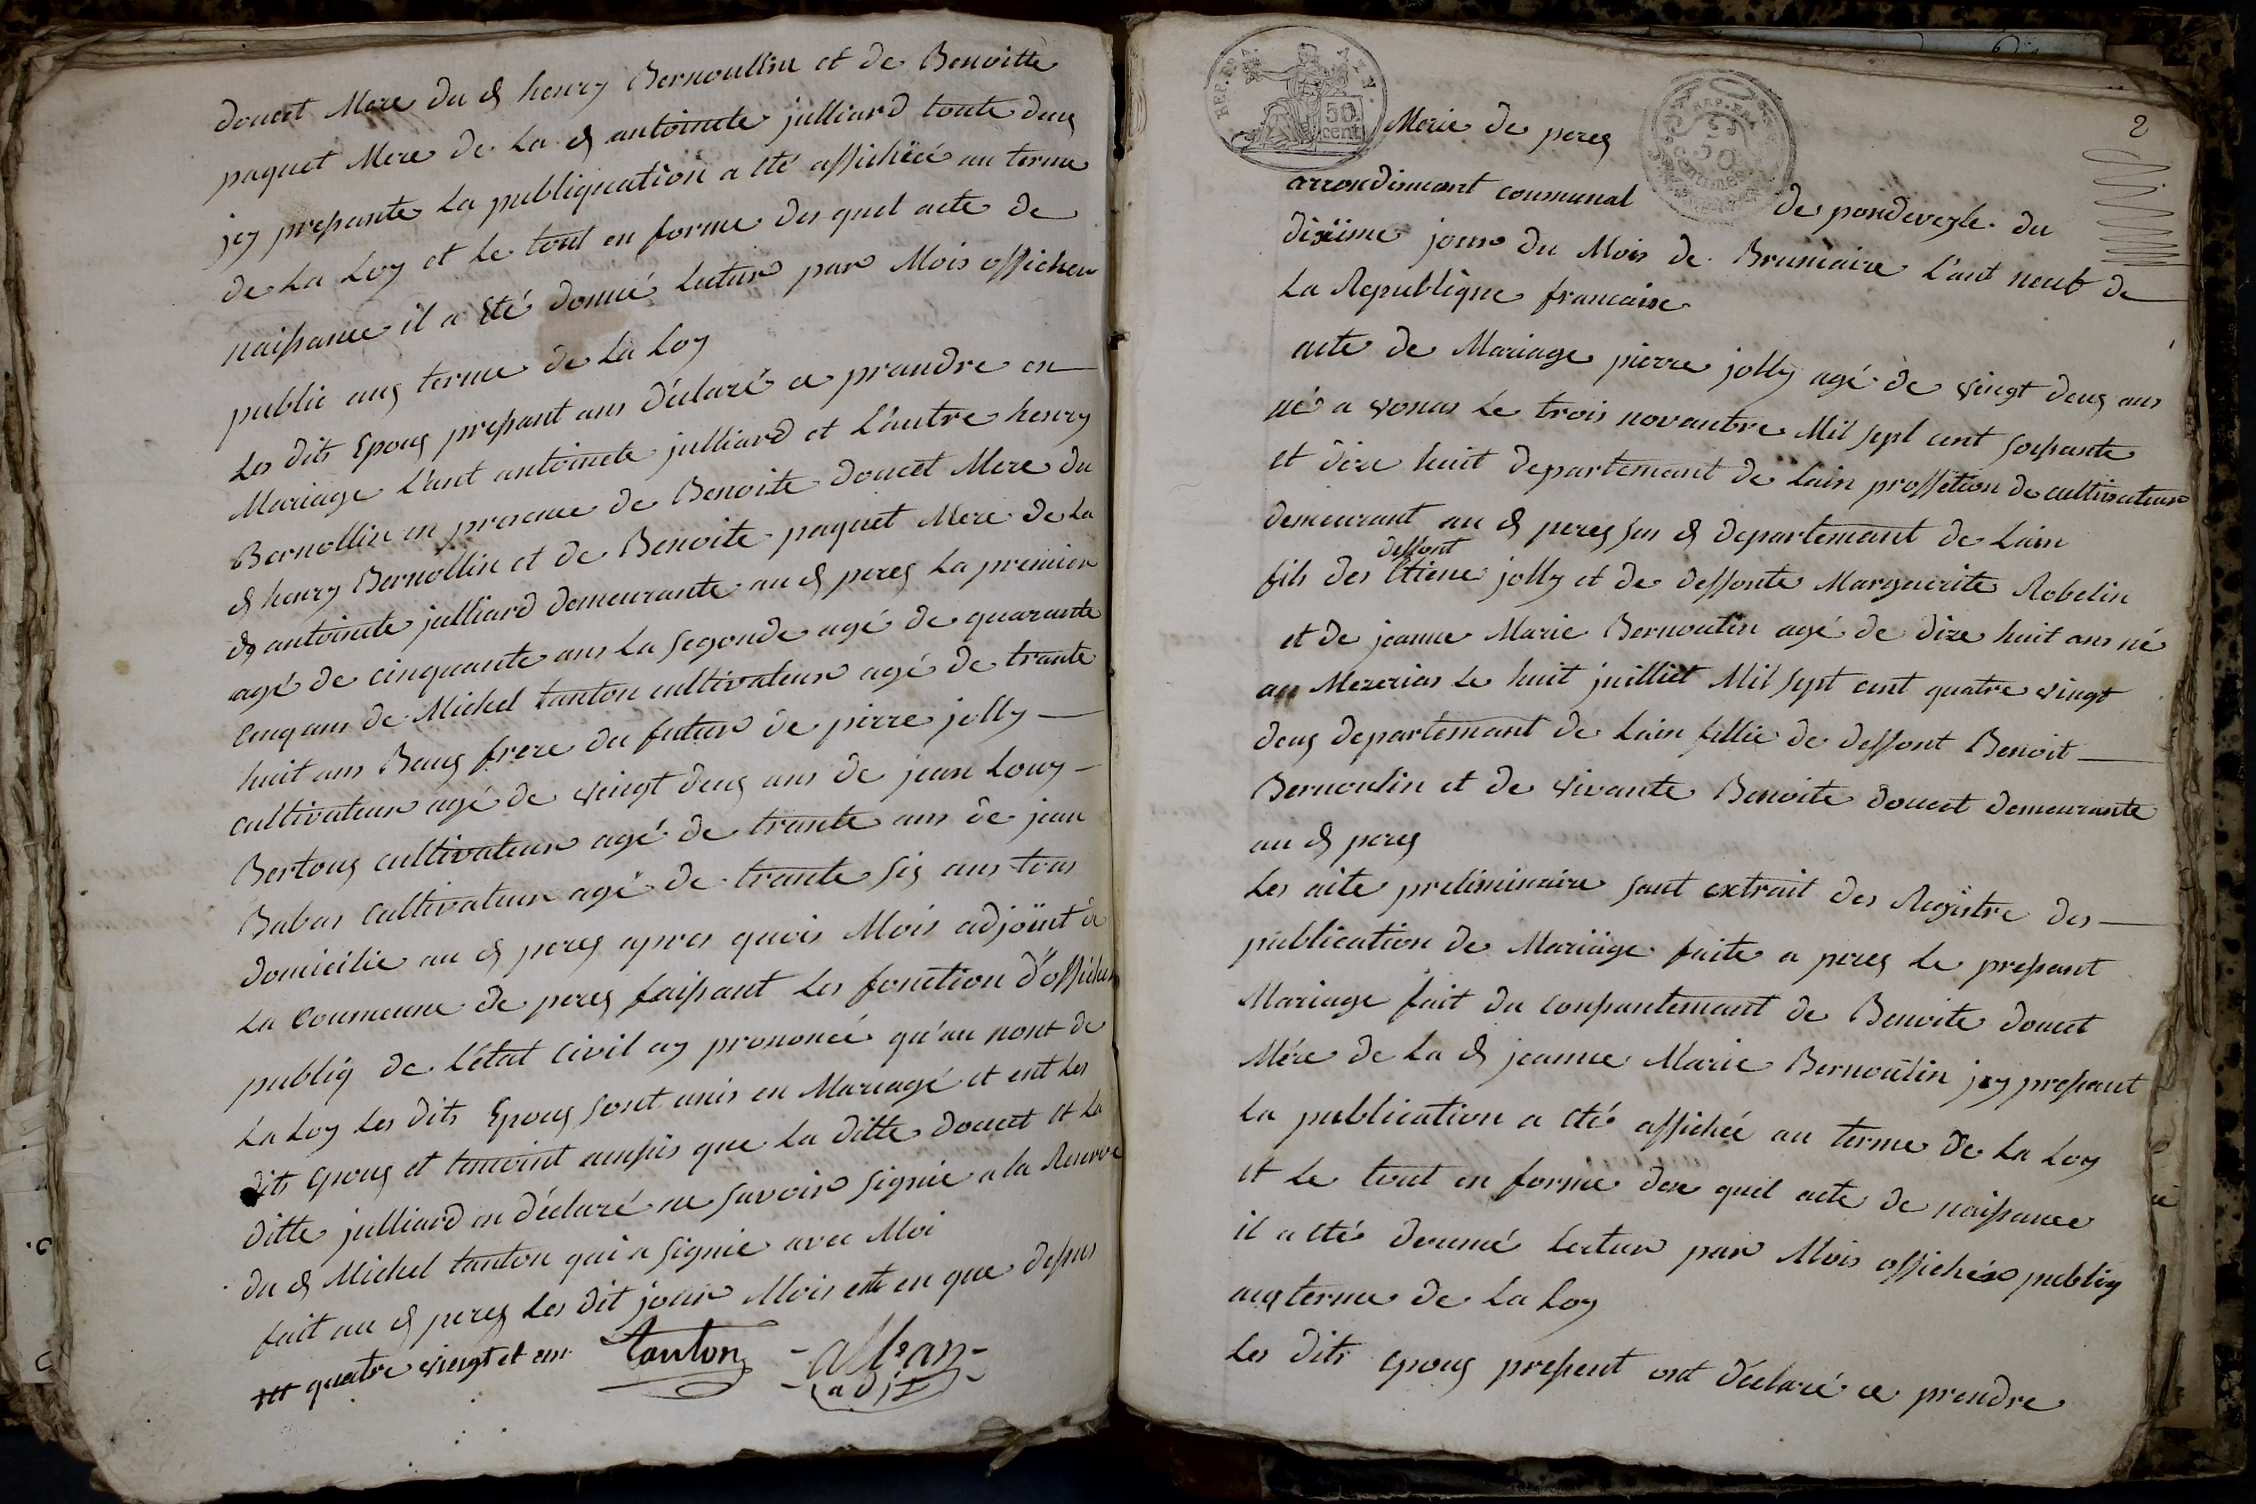 doucet Mere du d henry Bernoullin et de Benoitte
paquet Mere de La d antoinete julliard toute deuq
jcy presante La publiquation a été affichéé au terme
de La Loy et Le tout en forme des quel acte de
naissance il a Eté donné Lectur par Mois officher
public auq terme de La Loy
Les dits Epouq presant ans déclaré ce prandre en
Mariage L'unt antoinete julliard et L'autre henry
Bernollin en presance de Benoite doucet Mere du
d henry Bernollin et de Benoite paquet Mere de La
d antoinete julliard demeurante au d pereq La premier
agé de cinquante ans La segonde agé de quarante
cinq ans de Michel tanton cultivateur agé de trante
huit ans Bauq frere du futur de pirre jolly
cultivateur agé de vingt deuq ans de jean Louy
Bertouq cultivateur agé de trante ans de jean
Babas cultivateur agé de trante siq ans tous
domicilié au d pereq apres quois Mois adjoint de
La Coummune de pereq faissant Les fonction d'officher
publiq de L'état Civil ay prononcé qu'au nont de
La Loy Les dits Epouq sont unis en Mariagé et ent Les
dits Epouq et temoint ainssis que La ditte doucet et La
ditte julliard en déclaré ne savoir signie a la Reserve
du d Michel tanton qui a signie avec Moi
fait au d pereq Les dit jour Mois ent en que dessus
quatre vingt et un tanton allran
adjt
2
REP. FRA.
50 cent.
Merie de pereq
arrondisement communal de pondeveyle du
dixiime jour du Mois de Brumaire L'ant neuf de
La Republique francaise
acte de Mariage pierre jolly agé de vingt deuq ans
né a vonas Le trois novanbre Mil sept cent soissante
et dixe huit departemant de Lain proffetion de cultivateur
demeurant au d pereq sus d departemant de Lain
deffont
fils des Etiene jolly et de deffonte Marguerite Robelin
et de jeanne Marie Bernoulin agé de dixe huit ans né
au Mezerias Le huit juilliet Mil sept cent quatre vingt
deuq departemant de Lain fillie de deffont Benoit
Bernoulin et de vivante Benoite doucet demeurante
au d pereq
Les acte preliminaire sont extrait des Registre des
publication de Mariage faite a pereq Le pressant
Mariage fait du conssantemant de Benoite doucet
Mére de La d jeanne Marie Bernoulin jcy pressant
La publication a été affichée au terme de La Loy
et Le tout en forme dex quel acte de naissance
il a été donné Lectur par Mois officher publiq
auq terme de La Loy
Les dits Epouq pressent ont déclaré ce prendre